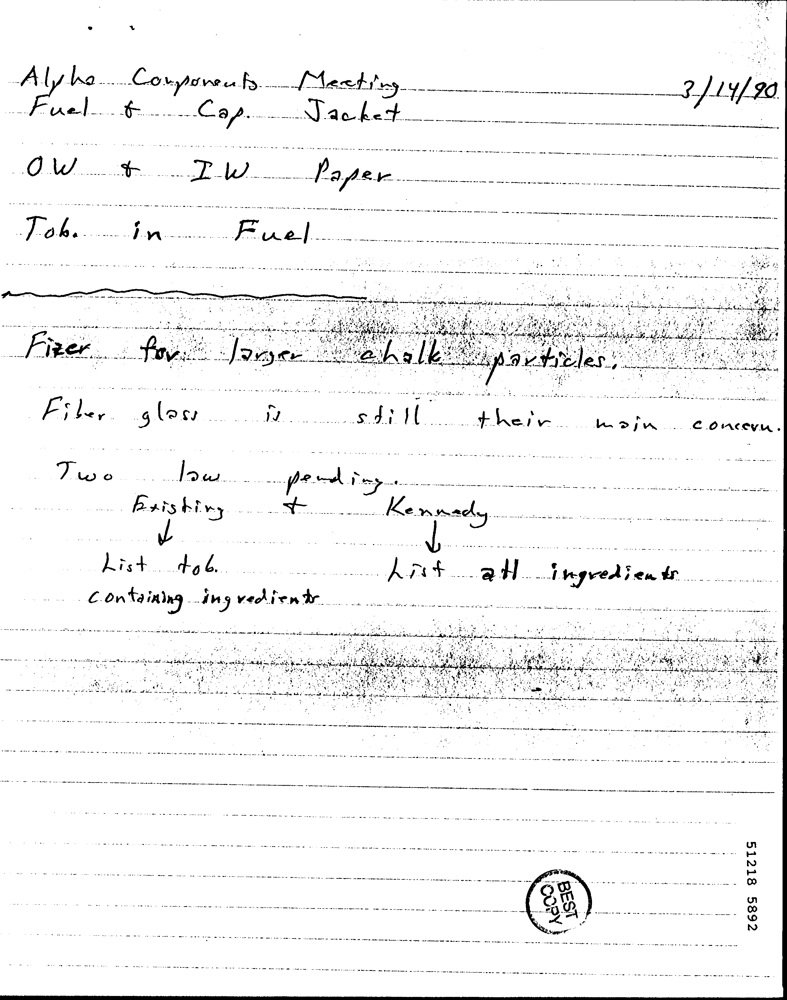 Alpha Components Meeting 3/14/90
Fuel & Cap. Jacket
OW & IW Paper
Tob. in Fuel
Fizer for larger chalk particles.
Fiber glass is still their main concern.
Two law pending.
Existing & Kennedy
↓ ↓
List tob. List all ingredients
containing ingredients
BEST
COPY
51218 5892